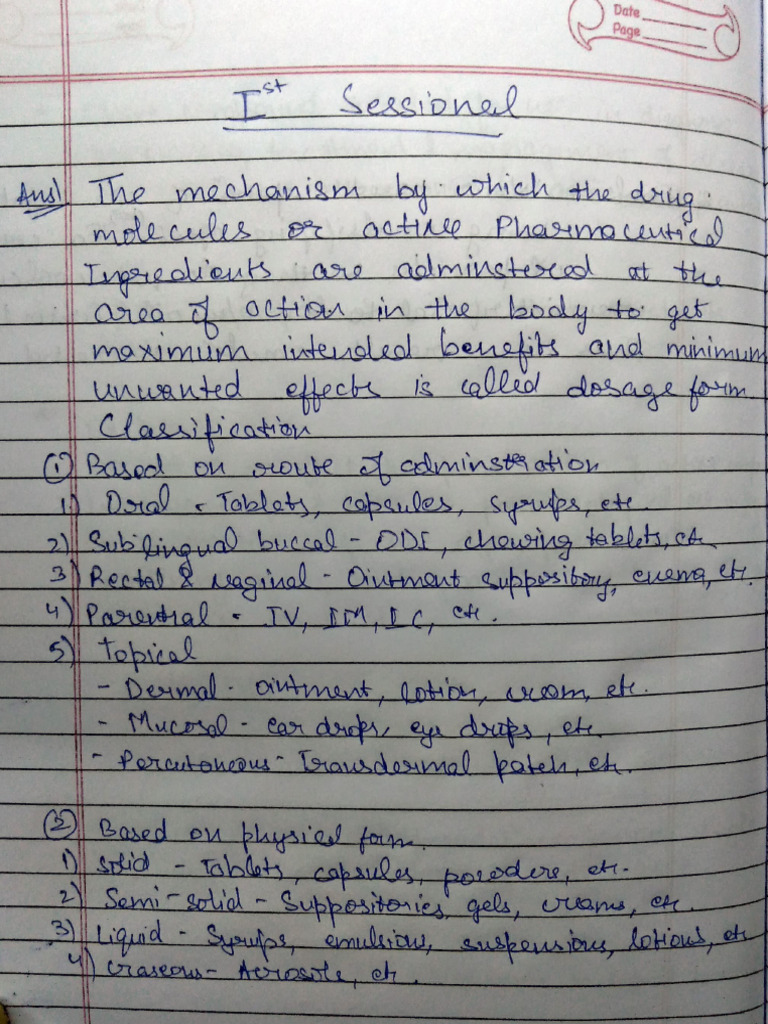 Date
Page
Ist Sessional
Ans1 The mechanism by which the drug
molecules or active Pharmaceutical
Ingredients are adminstered at the
area of action in the body to get
maximum intended benefits and minimum
unwanted effects is called dosage form
Classification
① Based on route of adminstration
1) Oral - Tablets, capsules, syrups, etc.
2) Sublingual buccal - ODI, chewing tablets, etc.
3) Rectal & vaginal - Ointment suppository, enema, etc.
4) Parentral - IV, IM, IC, etc.
5) Topical
- Dermal - ointment, lotion, cream, etc.
- Mucosal - ear drops, eye drops, etc.
- Percutaneous - Transdermal patch, etc.
② Based on physical form.
1) Solid - Tablets, capsules, powders, etc.
2) Semi-solid - Suppositories, gels, creams, etc.
3) Liquid - Syrups, emulsions, suspensions, lotions, etc
4) Graseous - Aerosols, etc.